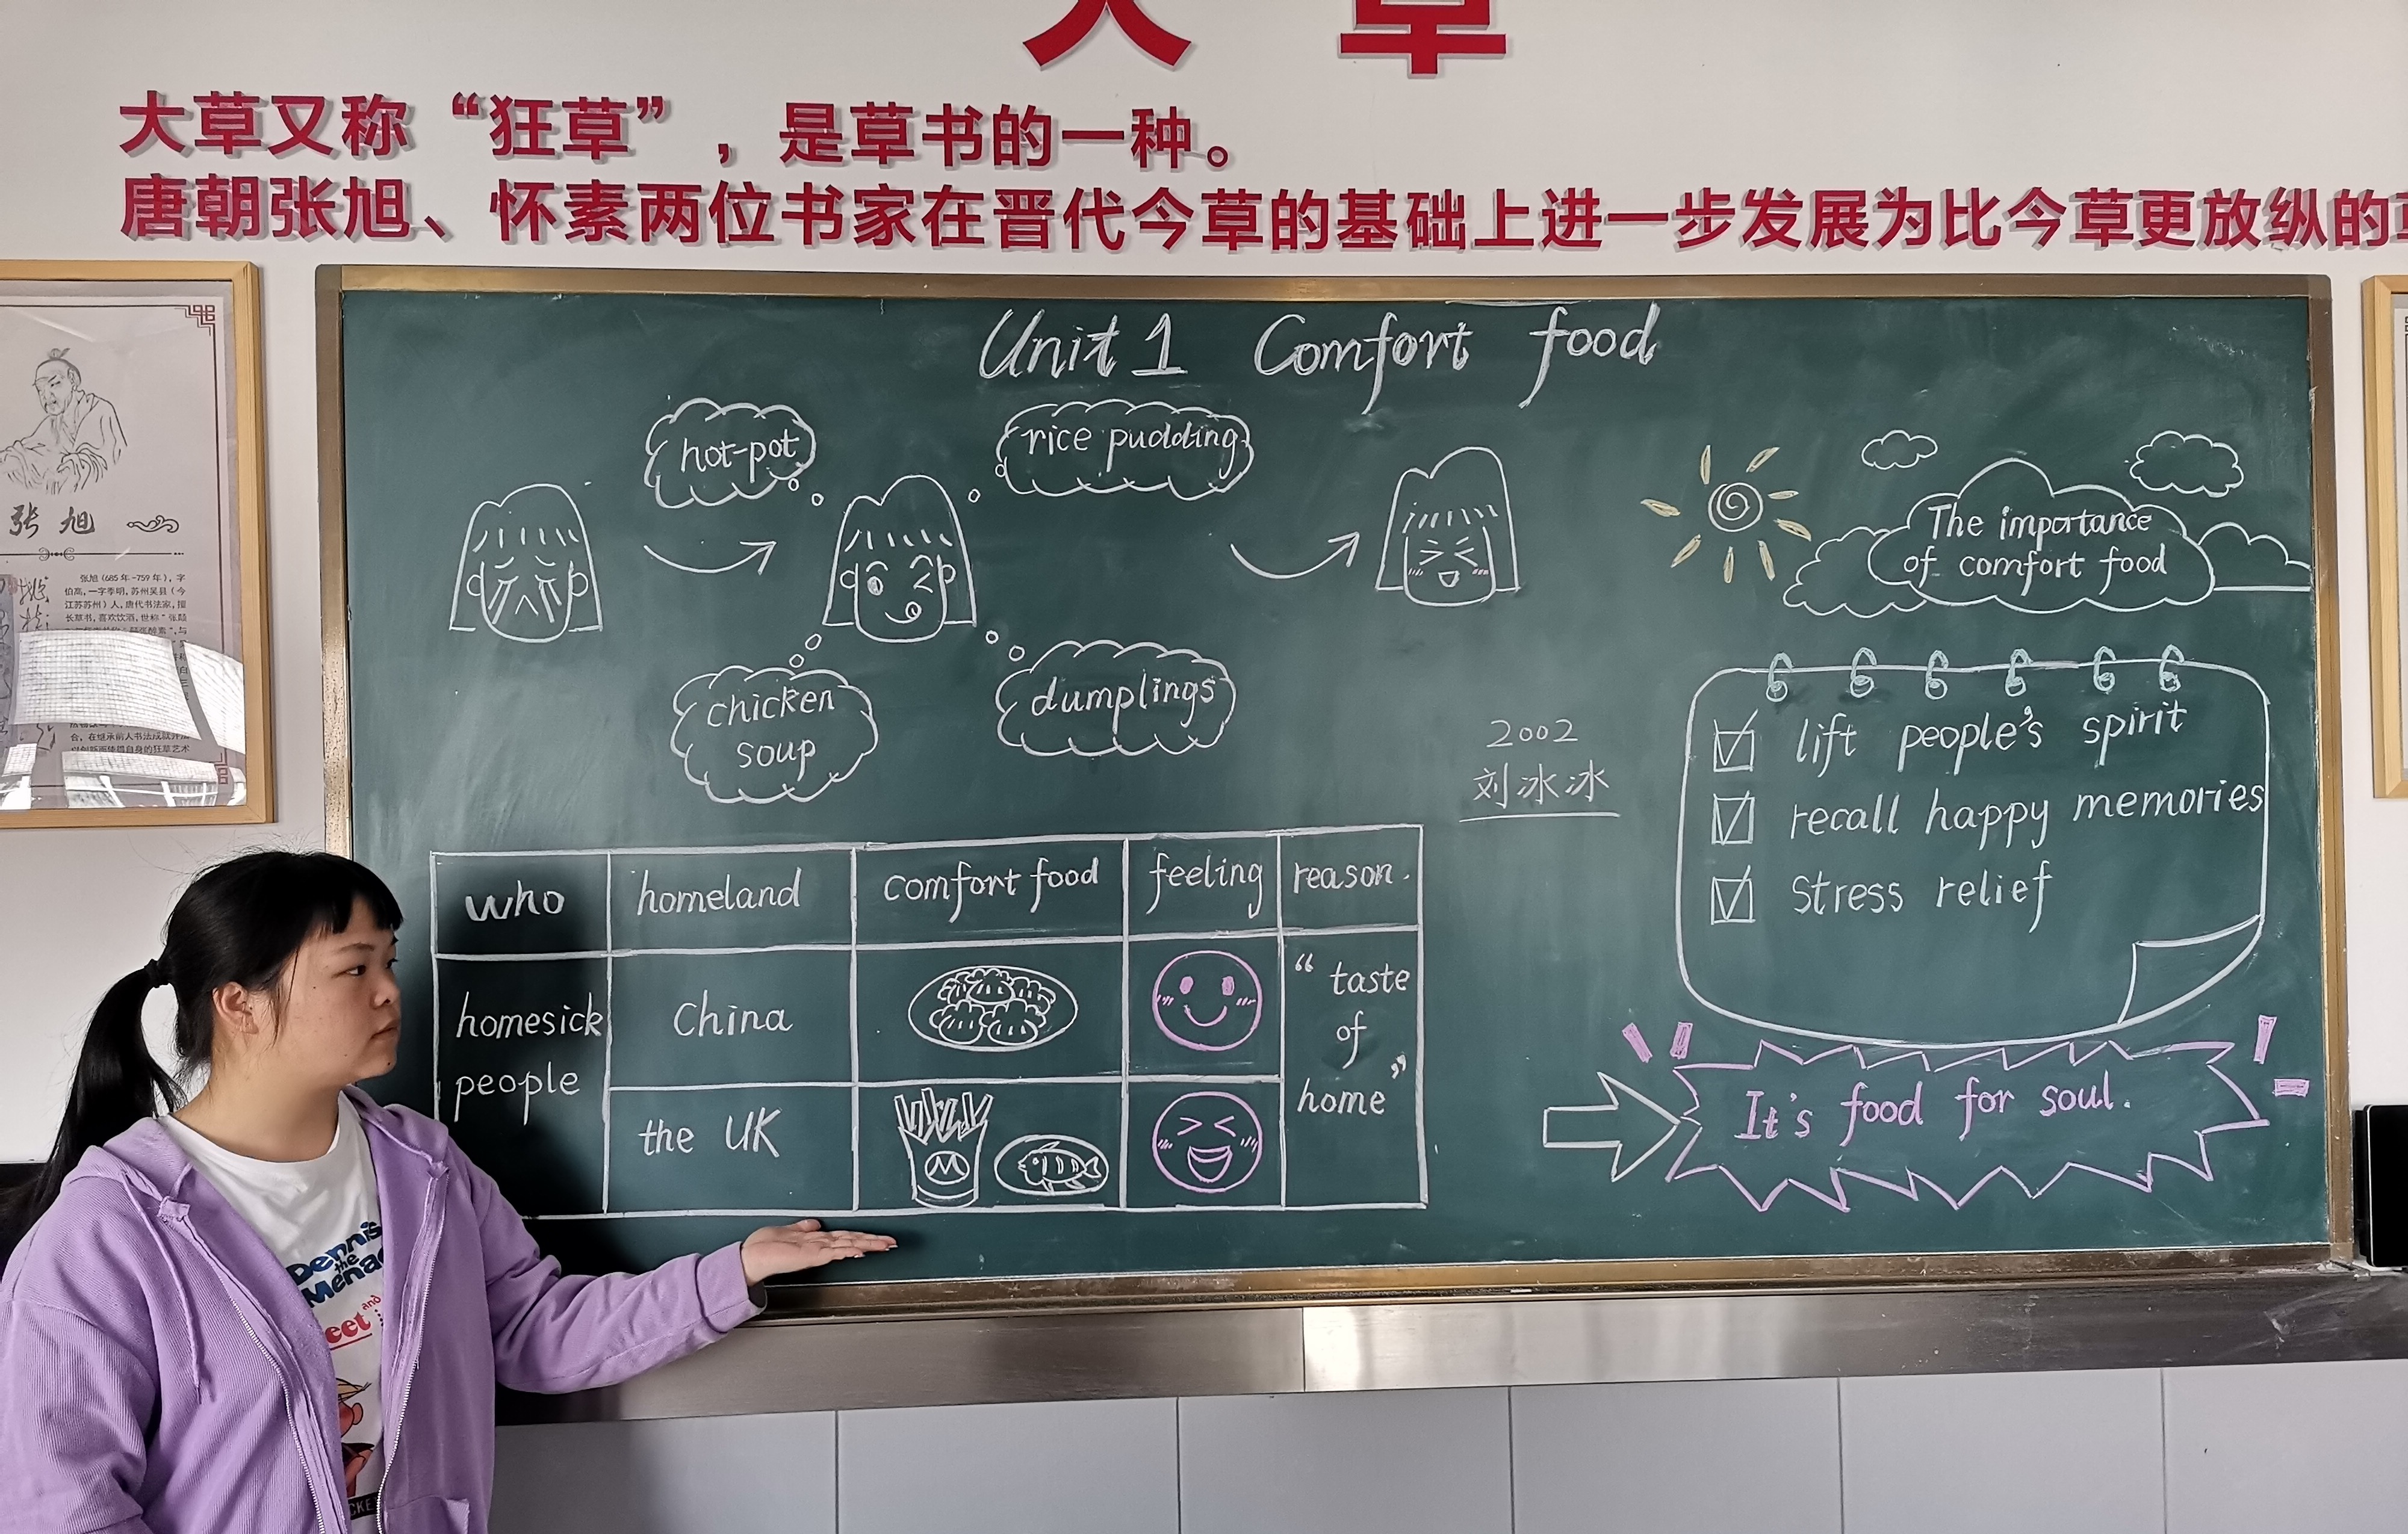 大草
大草又称“狂草”，是草书的一种。
唐朝张旭、怀素两位书家在晋代今草的基础上进一步发展为比今草更放纵的
张旭
张旭（685年-759年），字
伯高，一字季明，苏州吴县（今
江苏苏州）人，唐代书法家，擅
长草书，喜欢饮酒，世称“张颠
合，在继承前人书法成就并加
Unit 1 Comfort food
hot-pot
rice pudding
chicken
soup
dumplings
The importance
of comfort food
2002
刘冰冰
lift people's spirit
recall happy memories
stress relief
It's food for soul.
who homeland comfort food feeling reason.
homesick
people
China
the UK
M
“ taste
of
home ”
Dennis
the
Menac
eet